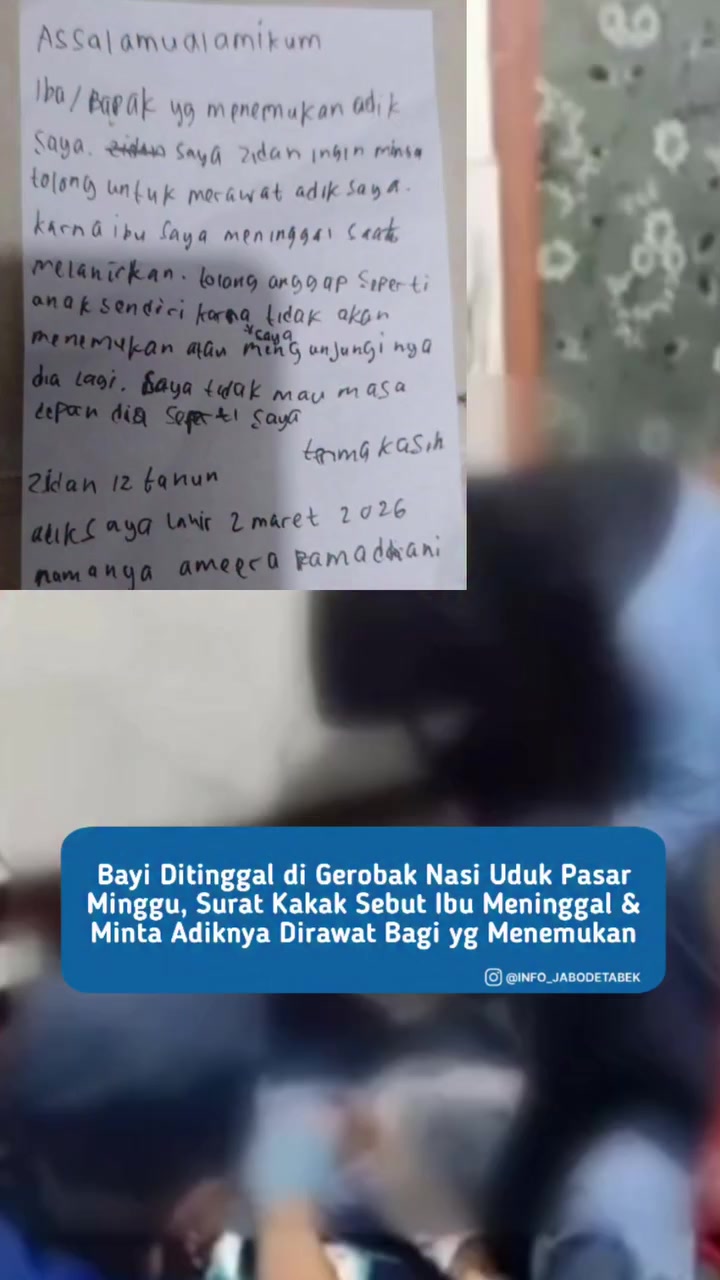 Assalamualamikum
Iba/Bapak yg menemukan adik
saya. zidan saya zidan ingin minta
tolong untuk merawat adik saya.
karna ibu saya meninggal saat
melahirkan. tolong anggap seperti
anak sendiri karna tidak akan
*saya
menemukan atau mengunjungi nya
dia lagi. Saya tidak mau masa
depan dia seperti saya
terima kasih
Zidan 12 tahun
adik saya lahir 2 maret 2026
namanya ameera Ramadhani
Bayi Ditinggal di Gerobak Nasi Uduk Pasar
Minggu, Surat Kakak Sebut Ibu Meninggal &
Minta Adiknya Dirawat Bagi yg Menemukan
@INFO_JABODETABEK